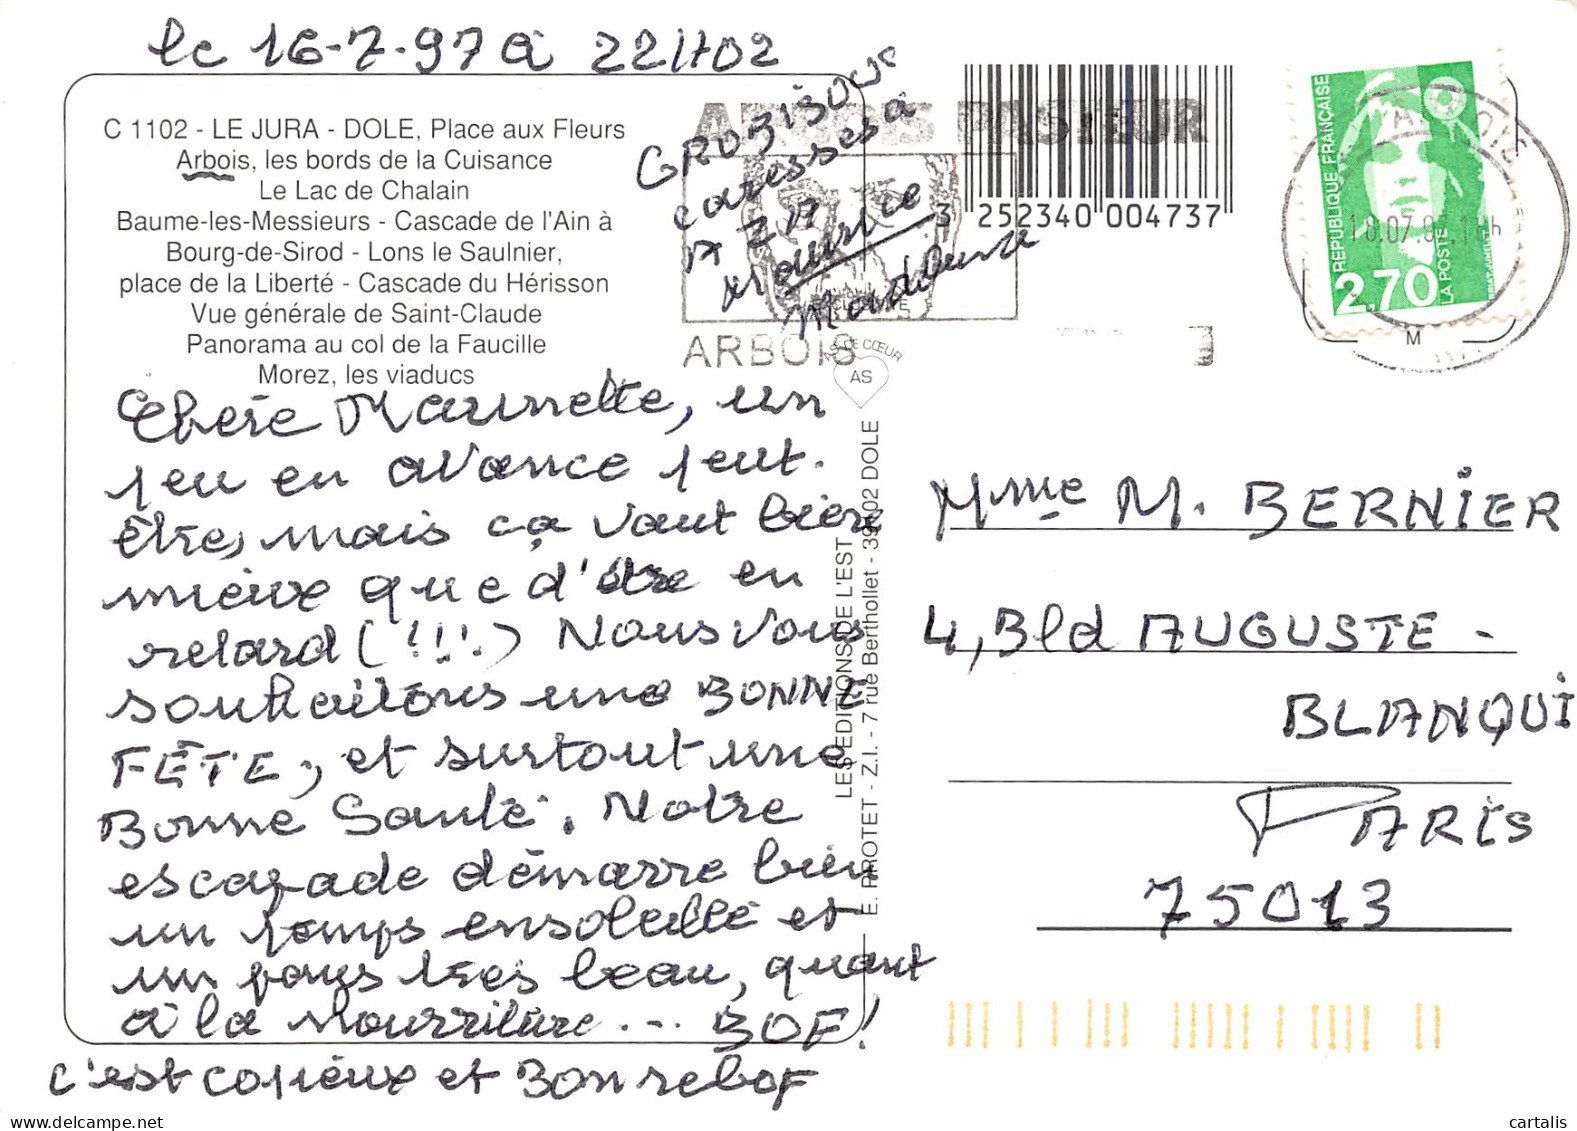 le 16-7-97 à 22H02
C 1102 - LE JURA - DOLE, Place aux Fleurs
Arbois, les bords de la Cuisance
Le Lac de Chalain
Baume-les-Messieurs - Cascade de l'Ain à
Bourg-de-Sirod - Lons le Saulnier,
place de la Liberté - Cascade du Hérisson
Vue générale de Saint-Claude
Panorama au col de la Faucille
Morez, les viaducs
Chère Maurinette, un
peu en avance peut-
être, mais ça vaut bien
mieux que d'être en
retard (!!!) Nous vous
souhaitons une BONNE
FÊTE, et surtout une
Bonne Santé. Notre
escapade démarre bien
un temps ensoleillé et
un pays très beau, quant
à la nourriture... BOF!
c'est copieux et Bon rebof
GROSBISOUS
caresses à
AZA
Maurice
ARBOIS PASTEUR
ARBOIS
3 252340 004737
AS DE CŒUR
AS
LES EDITIONS DE L'EST
E. PROTET - Z.I. - 7 rue Berthollet - 39102 DOLE
REPUBLIQUE FRANÇAISE
2,70
LA POSTE
M
Mme M. BERNIER
4, Bld AUGUSTE -
BLANQUI
PARIS
75013
www.cartalis.com
cartalis